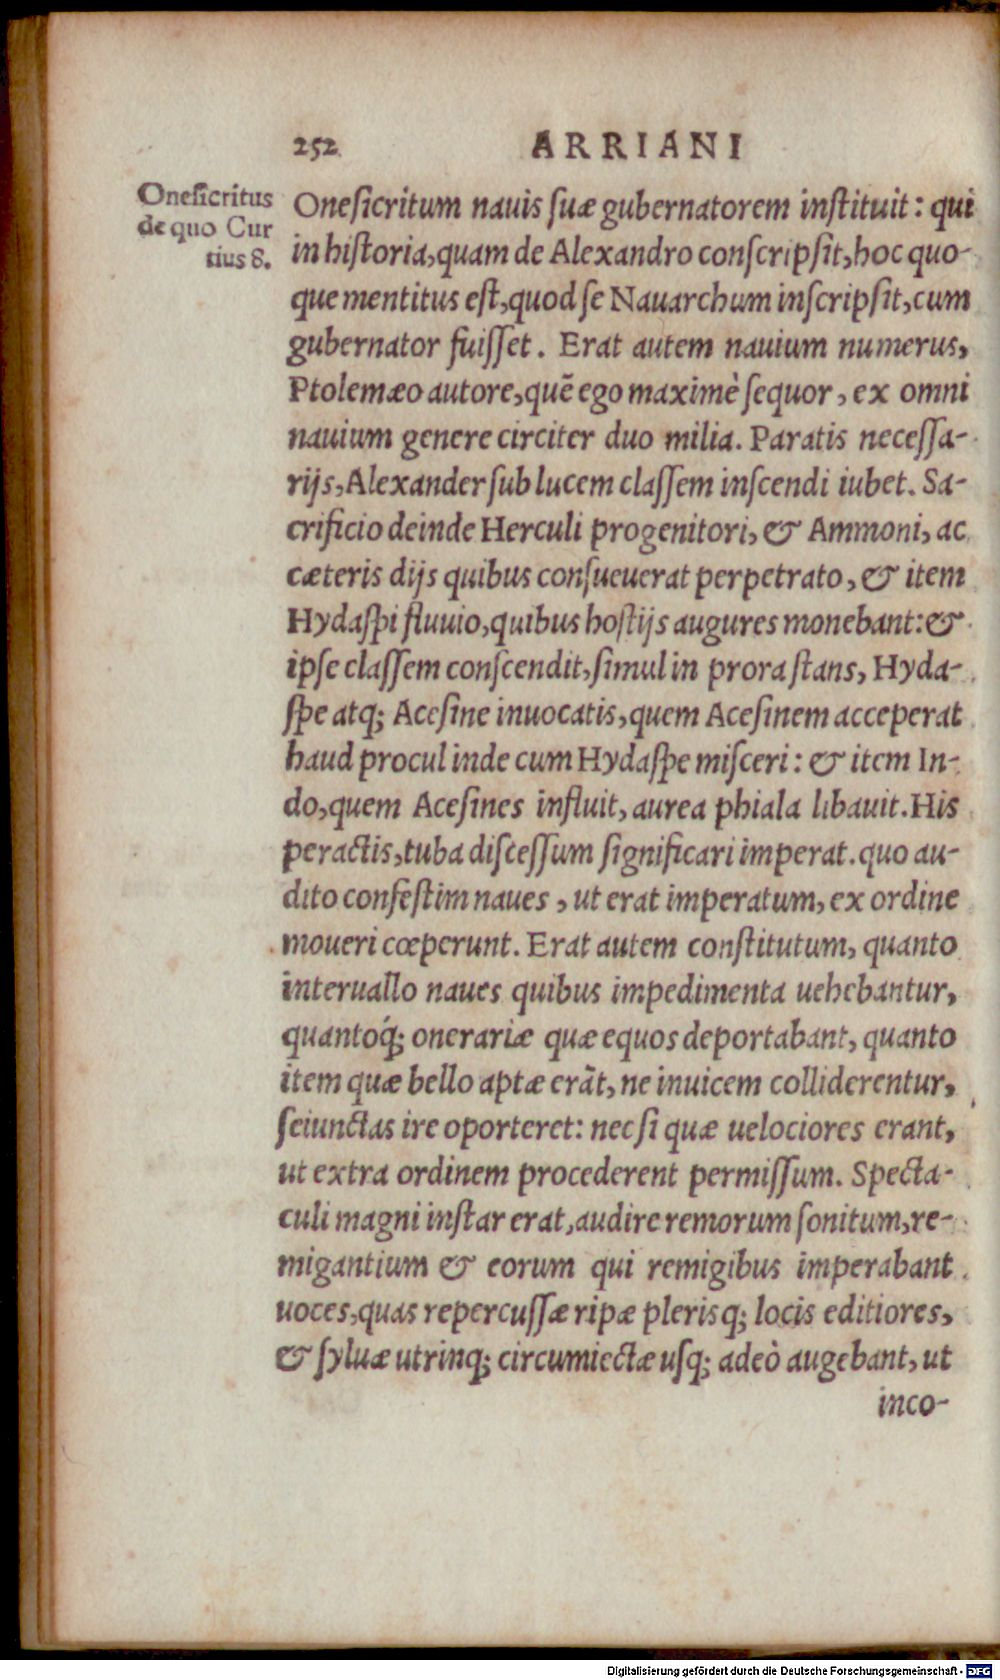 252 ARRIANI
Onesicritus
de quo Cur
tius 8.
Oneſicritum nauis ſuæ gubernatorem inſtituit: qui
in hiſtoria, quam de Alexandro conſcripſit, hoc quo-
que mentitus eſt, quod ſe Nauarchum inſcripſit, cum
gubernator fuiſſet. Erat autem nauium numerus,
Ptolemæo autore, quē ego maximè ſequor, ex omni
nauium genere circiter duo milia. Paratis neceſſa-
rijs, Alexander ſub lucem claſſem inſcendi iubet. Sa-
crificio deinde Herculi progenitori, & Ammoni, ac
cæteris dijs quibus conſueuerat perpetrato, & item
Hydaſpi fluuio, quibus hoſtijs augures monebant: &
ipſe claſſem conſcendit, ſimul in prora ſtans, Hyda-
ſpe atq; Aceſine inuocatis, quem Aceſinem acceperat
haud procul inde cum Hydaſpe miſceri: & item In-
do, quem Aceſines influit, aurea phiala libauit. His
peractis, tuba diſceſſum ſignificari imperat. quo au-
dito confeſtim naues, ut erat imperatum, ex ordine
moueri cœperunt. Erat autem conſtitutum, quanto
interuallo naues quibus impedimenta uehebantur,
quantoq́; onerariæ quæ equos deportabant, quanto
item quæ bello aptæ erāt, ne inuicem colliderentur,
ſeiunctas ire oporteret: nec ſi quæ uelociores erant,
ut extra ordinem procederent permiſſum. Specta-
culi magni inſtar erat, audire remorum ſonitum, re-
migantium & eorum qui remigibus imperabant
uoces, quas repercuſſæ ripæ pleriſq; locis editiores,
& ſyluæ utrinq; circumiectæ uſq; adeò augebant, ut
inco-
Digitalisierung gefördert durch die Deutsche Forschungsgemeinschaft - DFG